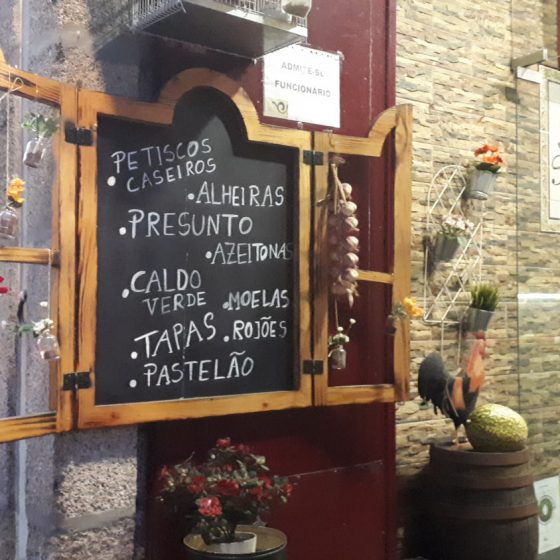 ADMITE-SE
FUNCIONÁRIO
PETISCOS
CASEIROS
.ALHEIRAS
.PRESUNTO
.AZEITONAS
.CALDO
VERDE
.MOELAS
.TAPAS
.ROJÕES
.PASTELÃO